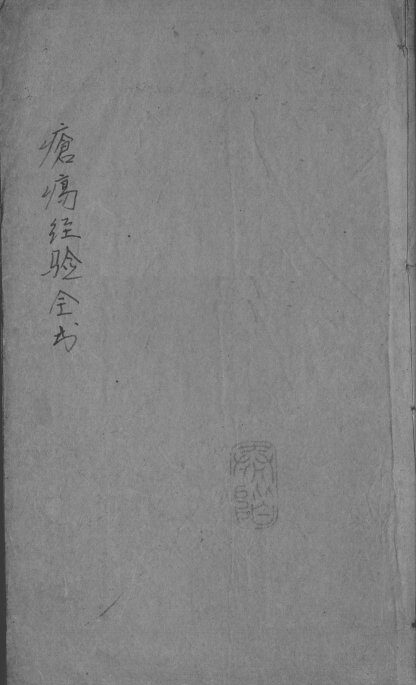 瘡瘍经验全书